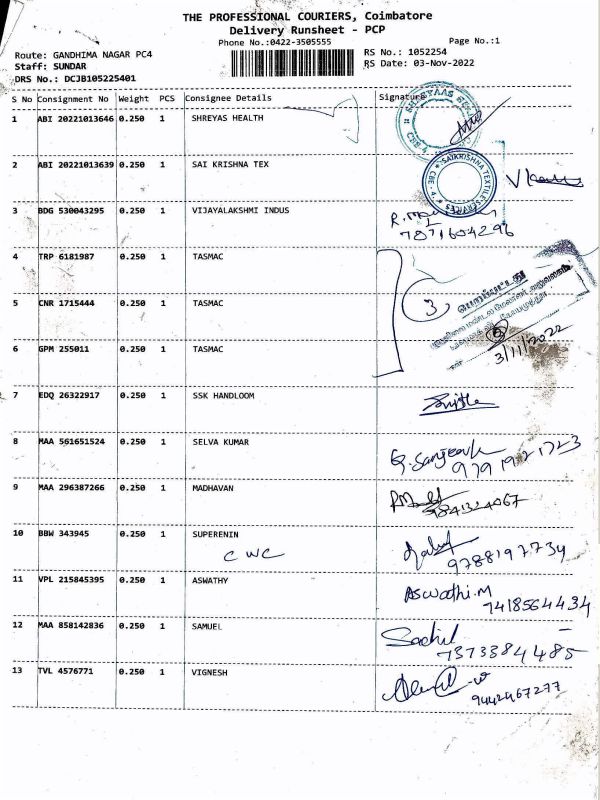 THE PROFESSIONAL COURIERS, Coimbatore
Delivery Runsheet - PCP
Phone No.:0422-3505555
Page No.:1
Route: GANDHIMA NAGAR PC4
RS No.: 1052254
Staff: SUNDAR
RS Date: 03-Nov-2022
DRS No.: DCJB105225401
S No Consignment No Weight PCS Consignee Details Signature
1 ABI 20221013646 0.250 1 SHREYAS HEALTH
2 ABI 20221013639 0.250 1 SAI KRISHNA TEX
SAIKRISHNA TEXTILE SERVICES CBE-4
3 BDG 530043295 0.250 1 VIJAYALAKSHMI INDUS
7871604296
4 TRP 6181987 0.250 1 TASMAC
3 பெறப்பட்டது
5 CNR 1715444 0.250 1 TASMAC
3/11/2022
6 GPM 255011 0.250 1 TASMAC
7 EDQ 26322917 0.250 1 SSK HANDLOOM
8 MAA 561651524 0.250 1 SELVA KUMAR
9791921723
9 MAA 296387266 0.250 1 MADHAVAN
9841324067
10 BBW 343945 0.250 1 SUPERENIN
CWC
9788197734
11 VPL 215845395 0.250 1 ASWATHY
Aswathi.M
7418564434
12 MAA 858142836 0.250 1 SAMUEL
7373384485
13 TVL 4576771 0.250 1 VIGNESH
9442467277